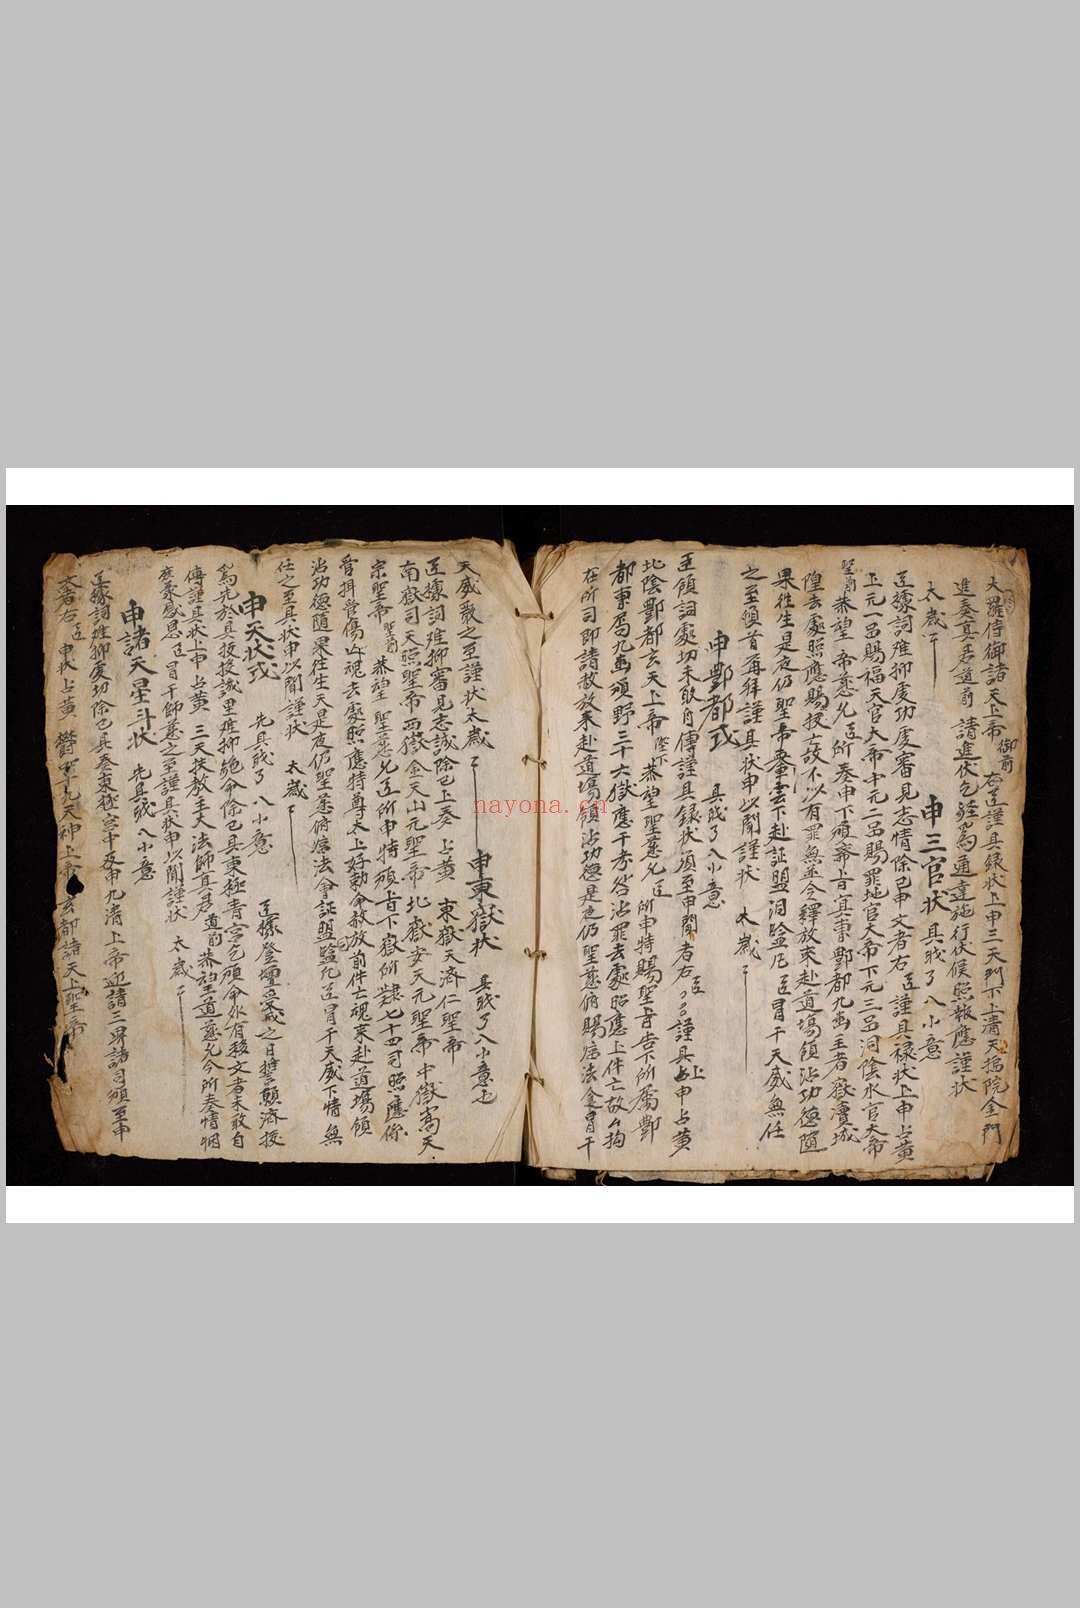 大羅侍御諸天上帝 御前 右臣謹具録状上申三天門下上清天樞院金門
進奏真君道前 請進伏乞経為通達施行伏候照報應謹状
太歳
申三官状 具戝了入小意
臣據詞难抑虔功虔審見志情除已申文者右臣謹具禄状上申占黄
上元一品賜福天官大帝中元二品赐罪地官大帝下元三品洞陰水官大帝
聖前恭望帝慈允臣所奏申下頒齋旨冥東酆都九幽主者嶽瀆城
隍去處照應賜授亡故不以有罪無並令釋放來赴道場領沾功德隨
果往生是夜仍聖帝乗雲下赴証盟洞監凡臣冒干天威無任
之至頓首再拜謹具状申以聞謹状 太歲
申酆都式 具戝了入小意
臣領詞處切未敢自傳謹具録状須至申聞者右臣謹具上申占黄
北陰酆都玄天上帝陛下恭望聖慈允臣所申特賜聖旨告下所屬酆
都東属九幽須野三十六獄應干考咎沾罪去處照應上件亡故
在所司即請赦放来赴道場領沾功德是夜仍聖慈俯賜应法会冒干
天威嚴之至謹状太歲
申東嶽状 具戝了入小意
臣據詞难抑審見志誠除已上奏占黄 東嶽天濟仁聖帝
南嶽司天照聖帝西嶽金天山元聖帝北嶽安天元聖帝中嶽嵩天
宗聖帝聖前恭望聖慈允臣所申特頒旨下嶽所隸七十四司照應俻
骨拝营傷亾魂去處照應特尊太上好勅命赦放前件亡魂來赴道場領
沾功德隨果往生天是夜仍聖慈俯应法會証盟監凡臣冒干天威下情無
任之至具状申以聞謹状 太歲
申天状式 先具戝了入小意
臣據登壇受戒之日誓願濟授
為先於具投投誠里难抑絶命除已具東極青宫乞頒命外有移文者未敢自
傳謹具状上申占黄 三天扶教主大法師真君道前恭望道慈允今所奏情悃
庶蒙感恩臣冒干師慈之至謹具状申以聞謹状 太歲
申諸天星斗状 先具戝入小意
臣據詞难抑虔切除已具奏東極宫中及申九清上帝迎請三界諸司須至申
文者右臣申状占黄 欝單九天神上帝玄都諸天上聖帝